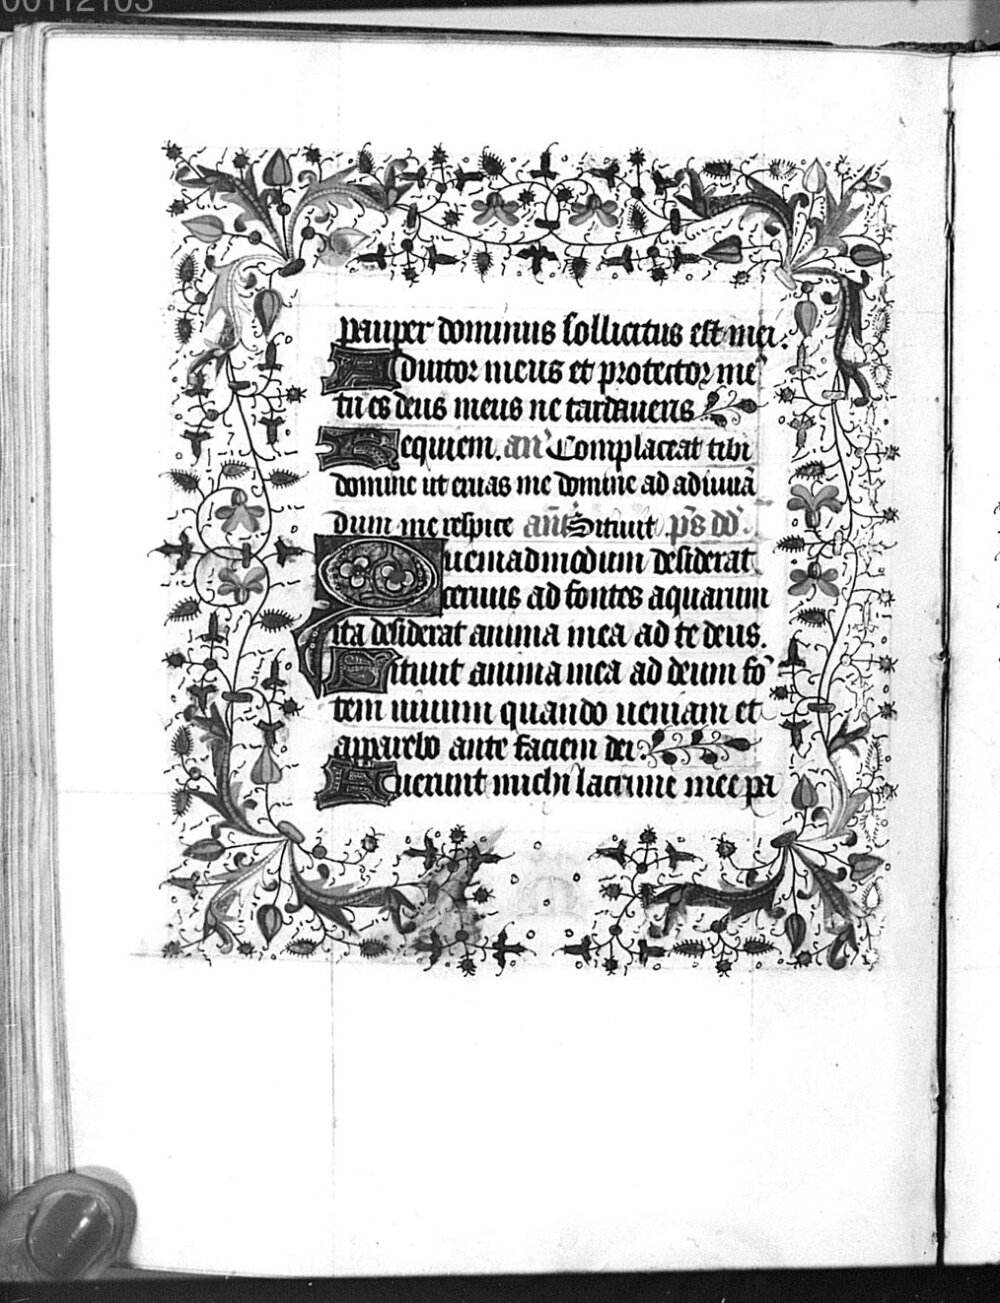 00112103
pauper dominus sollicitus est mei.
Adiutor meus et protector me᷒
tu es deus meus ne tardaueris
Requiem. an̄ Complaceat tibi
domine ut eruas me domine ad adiuuā
dum me respice an̄t Sitiuit p̄s dd̄.
Quemadmodum desiderat
ceruus ad fontes aquarum
ita desiderat anima mea ad te deus.
Sitiuit anima mea ad deum fō
tem uiuum quando ueniam et
apparebo ante faciem dei.
Fuerunt michi lacrime mee pa